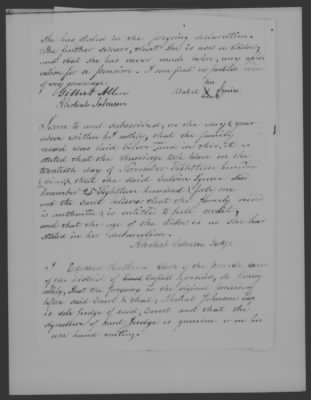 she has stated in the foregoing declaration.
She further swears, that she is now a widow,
and that she has never made before, any appli
cation for a pension. I can find no public record
of my marriage
her
Gilbert Allen Mahala X Squire
mark
Micheal Johnson
Sworn to and subscribed, on the day & year
above written & I certify, that the family
record was laid before and in this, it is
stated that the marriage took place on the
twentieth day of November Eighteen hundred
& nine, & that the said Squire died
December 25 Eighteen hundred & forty one
and the court believes that the family record
is authentic & is entitled to full credit,
and that the age of the widow is as she has
stated in her declaration.
Micheal Johnson Judge
I Edward Clerk of the circuit court
of the district of do hereby
certify, that the foregoing is the original proceeding
before said Court & that, Micheal Johnson Esq
is sole Judge of said Court and that the
signature of said Judge is genuine & in his
own hand writing.